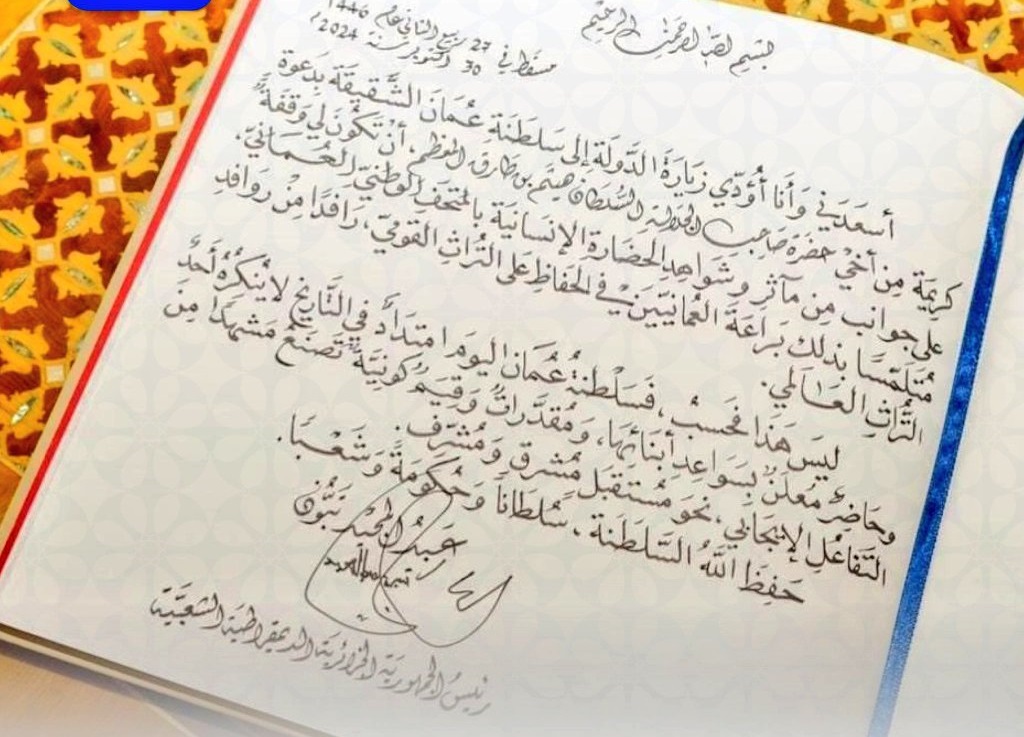 بسم الله الرحمن الرحيم
مسقط في 27 ربيع الثاني عام 1446
30 أكتوبر سنة 2024
أسعدَني وَأنا أُؤدّي زيارَةَ الدَّولَة إلى سَلطَنَةِ عُمَانَ الشَّقيقَة بِدَعوة
كريمَة مِن أخي حضرَة صَاحب الجلالة السُّلطان هيثم بن طارق المعظم، أنْ تكونَ لي وَقفَةٌ
على جوانب مِن مآثرِ وشواهدِ الحضارة الإنسانيَة بالمتحفِ الوطنيّ العُمَانيّ،
مُتَلمّسًا بذلك بَراعَة العُمَانيّينَ في الحفاظِ على التُراثِ القوميّ، رَافدًا مِنْ روَافدِ
التُّراثِ العَالمي.
ليسَ هَذا فحَسبُ، فَسَلْطنةُ عُمَان اليومَ امتدَادٌ في التَّاريخ لا يُنكرُهُ أحَدٌ
وحَاضِرٌ مُعلَنٌ بِسَواعدِ أبنائهَا، ومُقدَّراتٌ وَقيَمٌ كونيَّةٌ تَصنَعُ مَشهدًا مِنَ
التَفاعُلِ الإيجَابي، نحوَ مُستَقبَل مُشرقٍ ومُشرِّف.
حَفِظَ اللَّهُ السَّلطَنَة. سُلطاناً وَحُكومَةً وَشَعْبًا.
عَبدُ المجيد تبّون
رئيسُ الجمهوريَّة الجزائريَّة الديمقراطيَّة الشعبيَّة